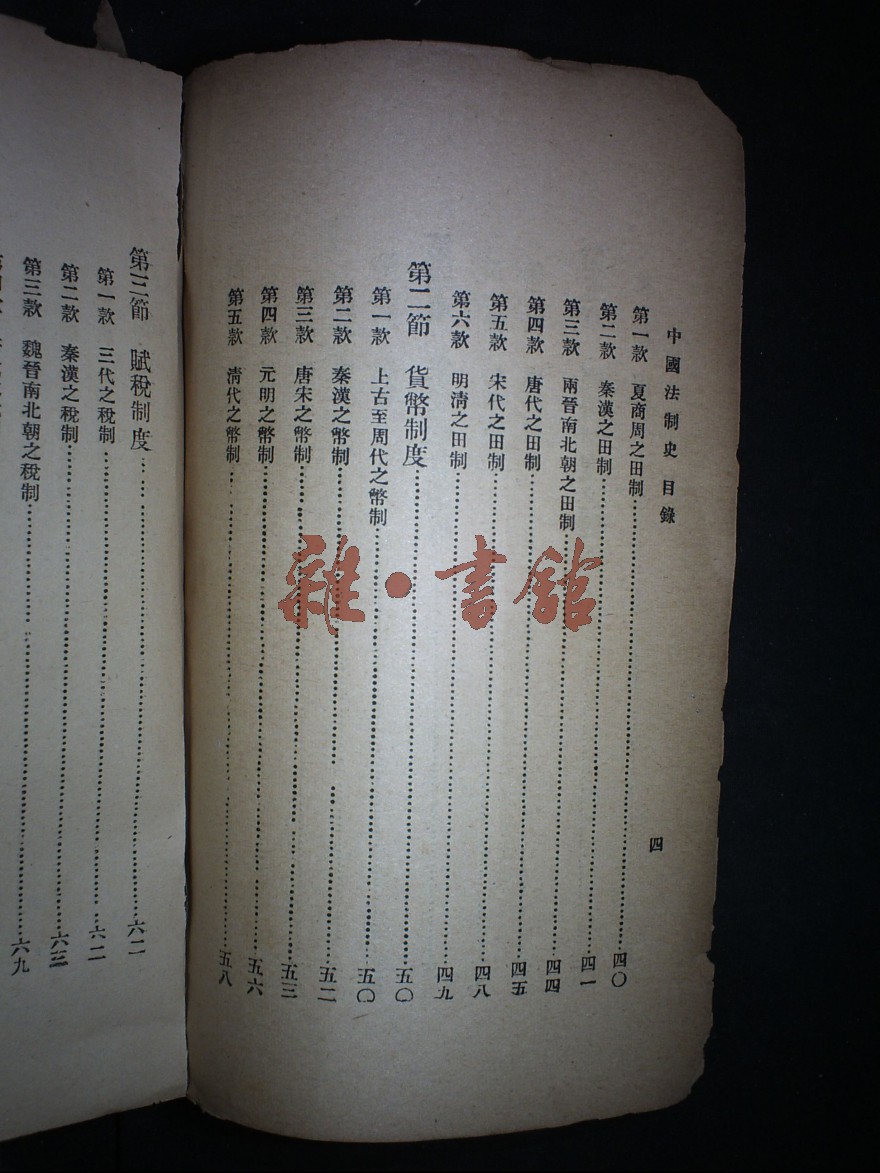 中國法制史 目錄
四
第一款 夏商周之田制 四〇
第二款 秦漢之田制 四一
第三款 兩晉南北朝之田制 四四
第四款 唐代之田制 四五
第五款 宋代之田制 四八
第六款 明清之田制 四九
第二節 貨幣制度 五〇
第一款 上古至周代之幣制 五〇
第二款 秦漢之幣制 五二
第三款 唐宋之幣制 五三
第四款 元明之幣制 五六
第五款 清代之幣制 五八
第三節 賦稅制度 六二
第一款 三代之稅制 六二
第二款 秦漢之稅制 六三
第三款 魏晉南北朝之稅制 六九
雜·書館